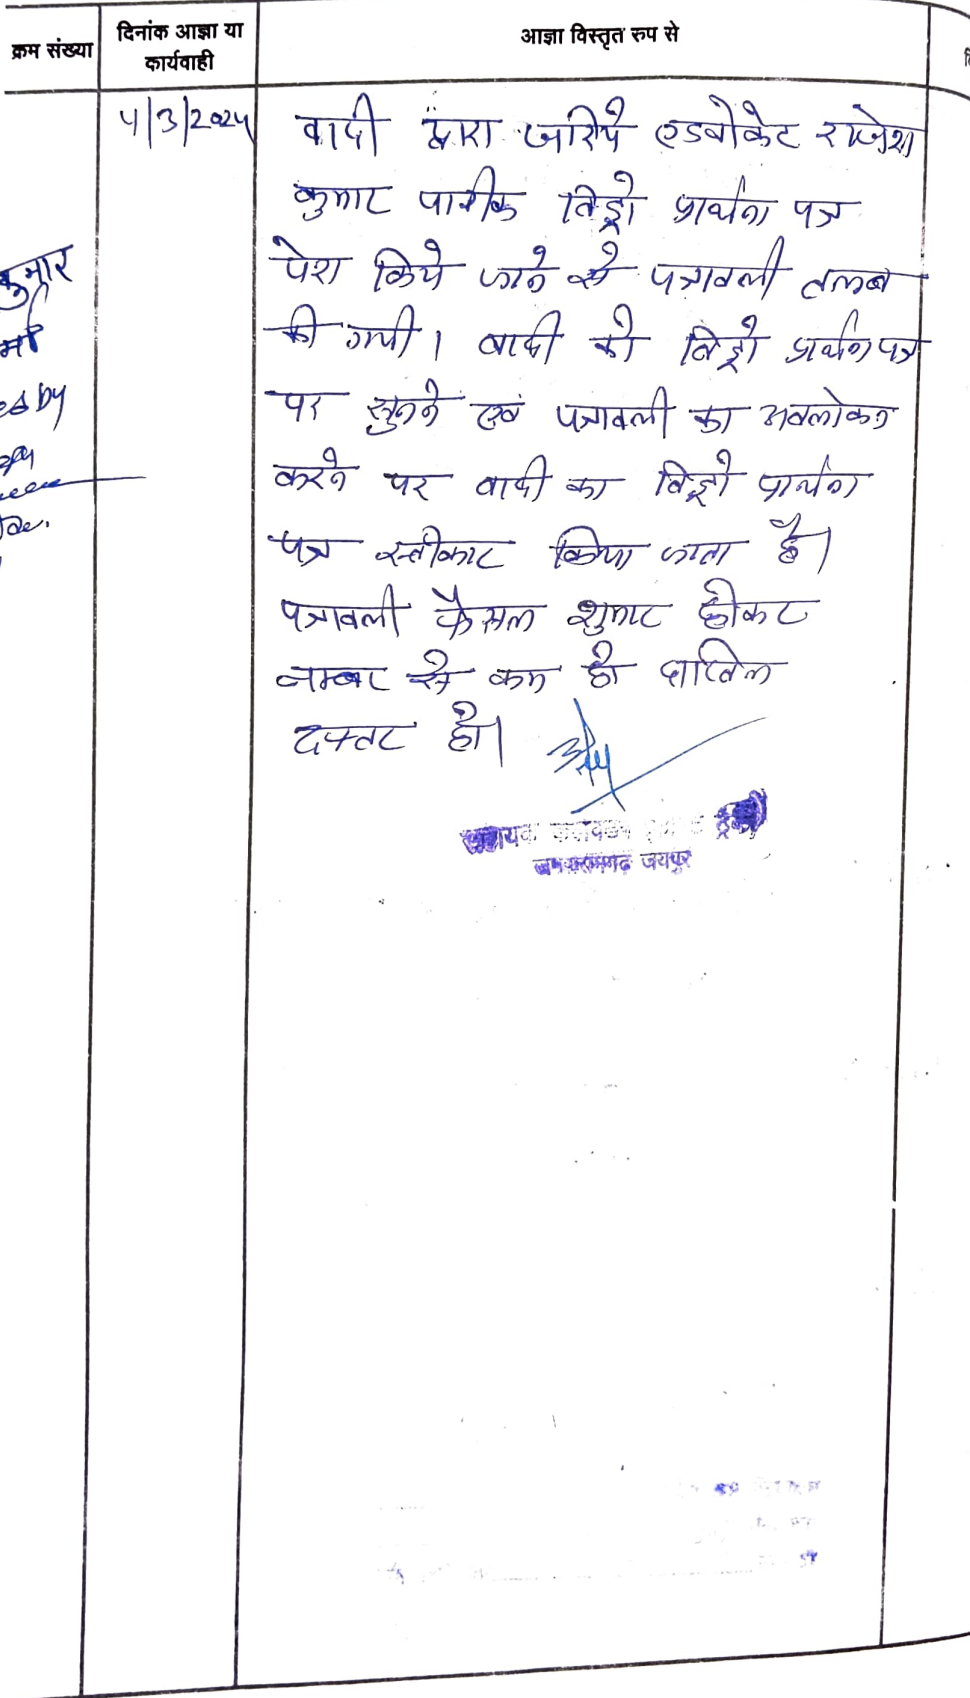 क्रम संख्या
दिनांक आज्ञा या
कार्यवाही
आज्ञा विस्तृत रुप से
4/3/2024
वादी द्वारा जरिये एडवोकेट राजेश
कुमार पारीक विड्रो प्रार्थना पत्र
पेश किये जाने से पत्रावली तलब
की गयी। वादी को विड्रो प्रार्थना पत्र
पर सुनने एवं पत्रावली का अवलोकन
करने पर वादी का विड्रो प्रार्थना
पत्र स्वीकार किया जाता है।
पत्रावली फैसल शुमार होकर
नम्बर से कम हो दाखिल
दफ्तर हो।
जमवारामगढ जयपुर
कुमार
by